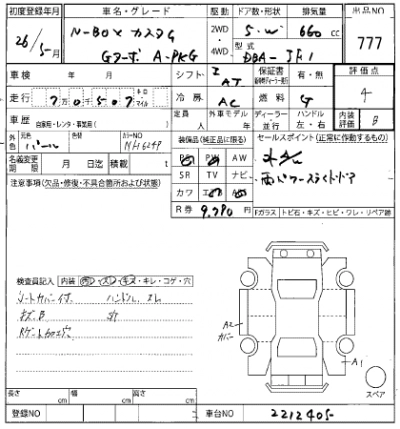 初度登録年月 車名・グレード 駆動 ドア数・形状 排気量 出品NO
26/5月 N-BOXカスタム 2WD 5.W 660cc 777
Gターボ A-PKG 4WD 型式 DBA-JF1
車検 年 月 シフト I AT 保証書 有・無 評価点
走行 7万0507 キロ マイル 冷房 AC 燃料 G 4
車歴 自家用・レンタ・事業用( ) 定員 人 外車モデル 年 ディーラー 並行 ハンドル 左・右 内装評価 B
外色 元色 パール カラーNO NH624P 装備品(純正品に限る) セールスポイント(正常に作動するもの)
名義変更期限 月 日迄 積載 t PS PW AW ナビ
注意事項(欠品・修復・不具合箇所および状態) SR TV ナビ 両パワースライドドア
カワ
R券 9,780円 Fガラス トビ石・キズ・ヒビ・ワレ・リペア跡
検査員記入 内装 汚・スレ・キズ・キレ・コゲ・穴
シートカバー付 ハンドル スレ
キズ、B
Rゲート加工穴
A2
カバー
A1
スペア
長さ cm 幅 cm 高さ cm
登録NO 車台NO 2212405